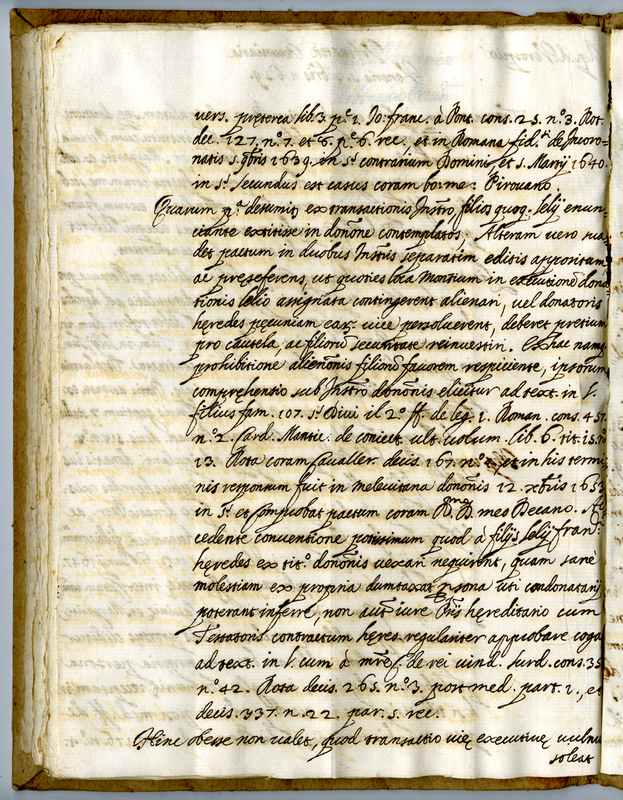 vers. præterea lib. 3. n.º 1. Jo: franc. à Pont. cons. 25. n.º 3. Rot.
dec. 127. n.º 7. et 6. n.º 6. rec. et in Romana fid.ti de Incoro=
natis 5. 9bris 1639. in s. contrarium Dominis et 5. Martij 1640.
in s. Secundus est casus coram bo: me: Pirouano.
Quarum p.ª desumitur ex transactionis Instro, filios quoq. Lelij enun=
ciante extitisse in donone contemplatos; Alteram uero sua
det pactum in duobus Instris separatim editis appositum
ac preseferens, ut quoties loca Montium in executione dona
tionis Lelio assignata contingerent alienari, uel donatoris
hęredes pęcuniam ear. uice persoluerent, deberet pretium
pro cautela, ac filiorū securitate reinuestiri. Ex hac namq
prohibitione alienōnis filiorū fauorem respiciente, ipsorum
comprehensio sub Instro donōnis elicitur ad text. in l.
filius fam. 107. s. Diui il 2.º ff. de leg. 1. Roman. cons. 457.
n.º 2. Card. Mantic. de coniect. ult. uolum. lib. 6. tit. 15. n.º
13. Rota coram Caualler. decis. 167. n.º et in his termi
nis responsum fuit in Meleuitana donōnis 12. Xbris 165
in s. et comprobat pactum coram R. D. meo Decano. Ac
cedente conuentione potissimum quod à filijs Lelij franc.
hęredes ex tit.º donōnis uexari nequirent, quam sanè
molestiam ex propria dumtaxat psona uti condonatarij
poterant inferre, non aut iure Pris hęreditario cum
Testatoris contractum hęres regulariter approbare coga
ad text. in l. cum à mre ff. de rei uind. Surd. cons. 35
n.º 42. Rota decis. 265. n.º 3. post med. part. 1., et
decis. 337. n. 22. par. 5. rec.
Hinc obesse non ualet, quod transactio uię executiuę uulnu
soleat